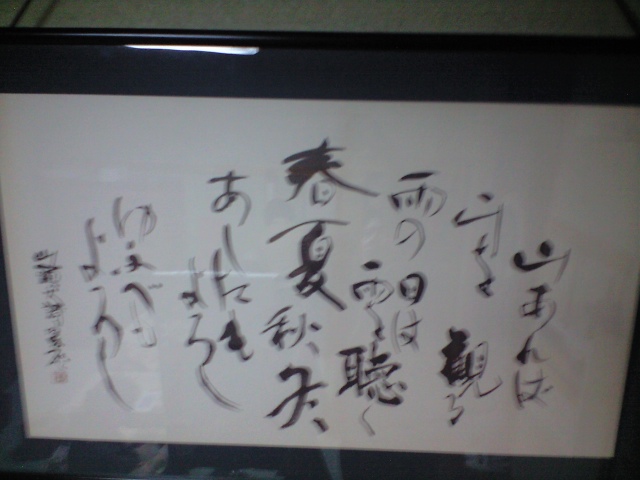 山あれば
山を観る
雨の日は
雨を聴く
春夏秋冬
あしたも
よろし
ゆふべも
よろし